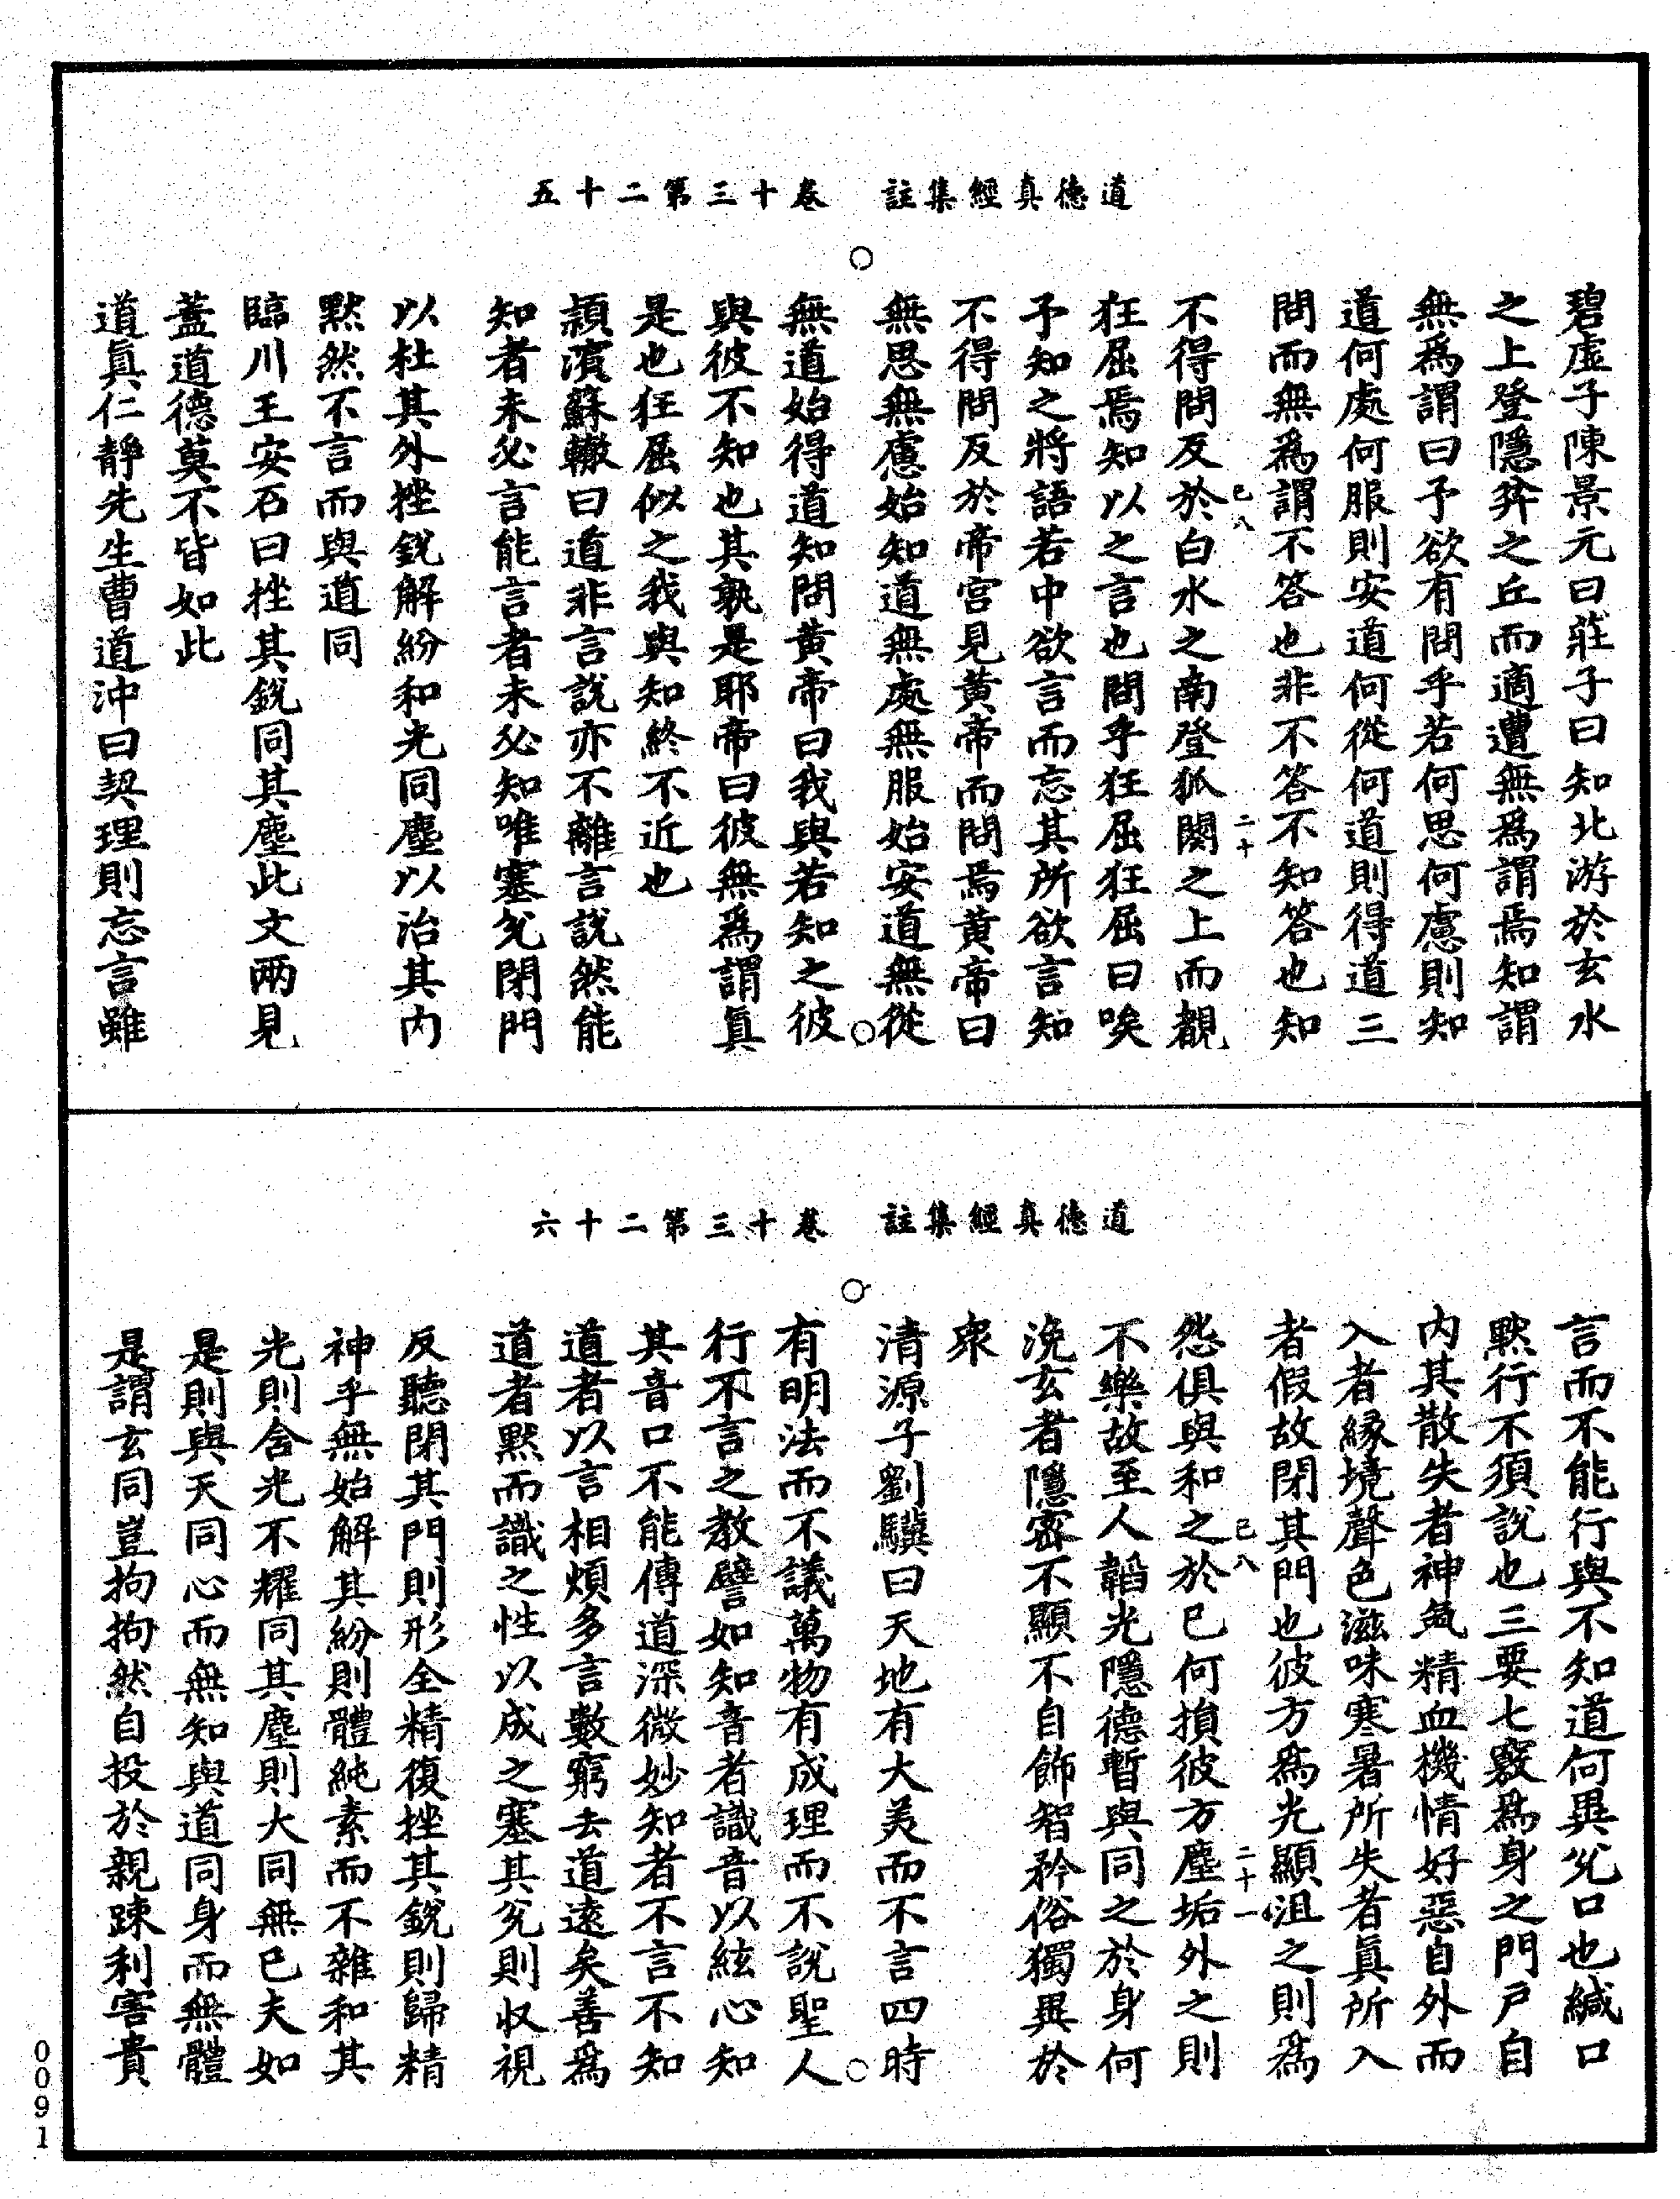 道德真經集註　卷十三第二十五
碧虛子陳景元曰莊子曰知北游於玄水
之上登隱弅之丘而適遭無爲謂焉知謂
無爲謂曰予欲有問乎若何思何慮則知
道何處何服則安道何從何道則得道三
問而無爲謂不答也非不答不知答也知
已八　二十
不得問反於白水之南登狐闋之上而覩
狂屈焉知以之言也問乎狂屈狂屈曰唉
予知之將語若中欲言而忘其所欲言知
不得問反於帝宮見黃帝而問焉黃帝曰
無思無慮始知道無處無服始安道無從
無道始得道知問黃帝曰我與若知之彼
與彼不知也其孰是耶帝曰彼無爲謂真
是也狂屈似之我與知終不近也
潁濱蘇轍曰道非言說亦不離言說然能
知者未必言能言者未必知唯塞兊閉門
以杜其外挫銳解紛和光同塵以治其內
默然不言而與道同
臨川王安石曰挫其銳同其塵此文兩見
蓋道德莫不皆如此
道真仁靜先生曹道沖曰契理則忘言雖
道德真經集註　卷十三第二十六
言而不能行與不知道何異兊口也緘口
默行不須說也三要七竅爲身之門戶自
內其散失者神氣精血機情好惡自外而
入者緣境聲色滋味寒暑所失者真所入
者假故閉其門也彼方爲光顯沮之則爲
已八　二十一
怨俱與和之於已何損彼方塵垢外之則
不樂故至人韜光隱德暫與同之於身何
浼玄者隱密不顯不自飾智矜俗獨異於
衆
清源子劉驥曰天地有大美而不言四時
有明法而不議萬物有成理而不說聖人
行不言之教譬如知音者識音以絃心知
其音口不能傳道深微妙知者不言不知
道者以言相煩多言數窮去道遠矣善爲
道者默而識之性以成之塞其兊則收視
反聽閉其門則形全精復挫其銳則歸精
神乎無始解其紛則體純素而不雜和其
光則含光不耀同其塵則大同無已夫如
是則與天同心而無知與道同身而無體
是謂玄同豈拘拘然自投於親踈利害貴
0091